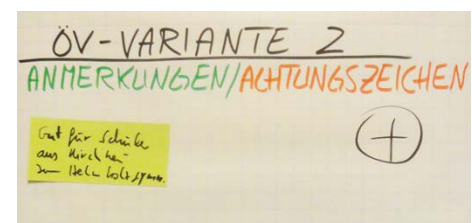 ÖV-VARIANTE 2
ANMERKUNGEN/ACHTUNGSZEICHEN
+
Gut für Schüler
aus Kirchen
zum Helmholtzgymn.